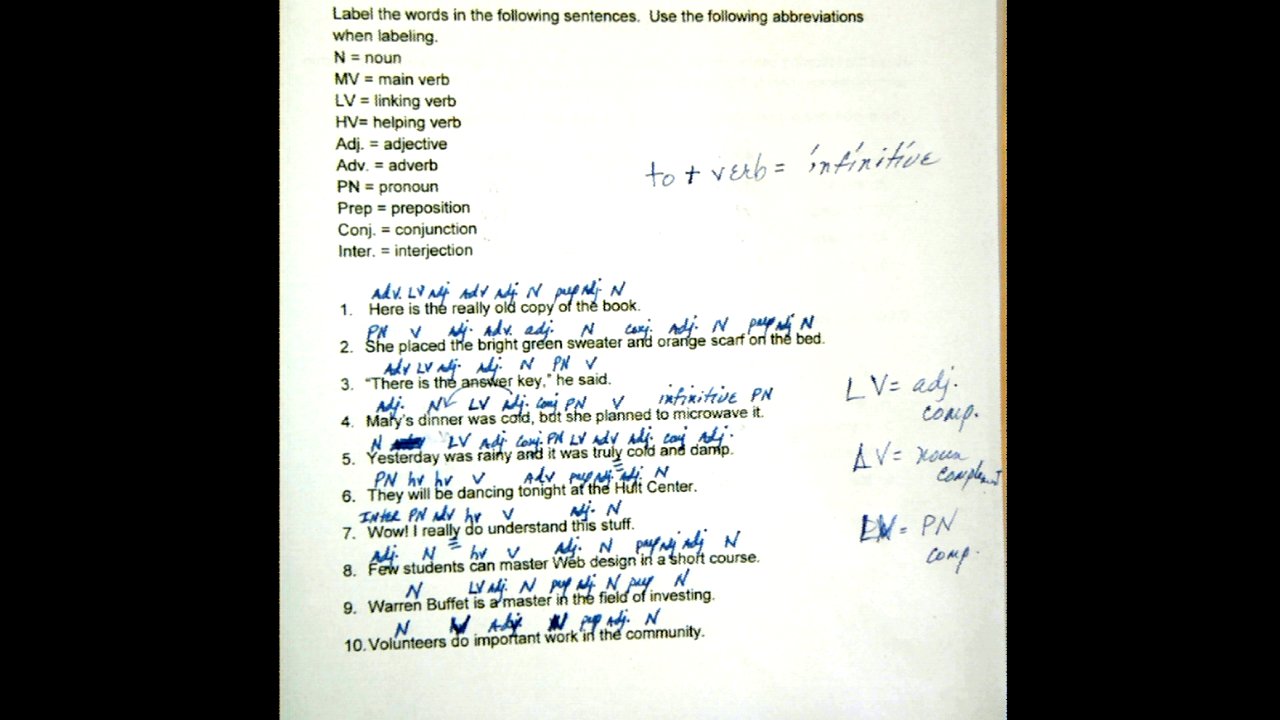 Label the words in the following sentences. Use the following abbreviations
when labeling.
N = noun
MV = main verb
LV = linking verb
HV= helping verb
Adj. = adjective
Adv. = adverb
to + verb = infinitive
PN = pronoun
Prep = preposition
Conj. = conjunction
Inter. = interjection
Adv. LV Adj. Adv Adj. N prep Adj. N
1. Here is the really old copy of the book.
PN V Adj. Adv. adj. N conj. Adj. N prep Adj N
2. She placed the bright green sweater and orange scarf on the bed.
Adv LV Adj. Adj. N PN V
3. "There is the answer key," he said.
Adj. N LV Adj. conj PN V infinitive PN
4. Mary's dinner was cold, but she planned to microwave it.
LV= adj.
comp.
N LV Adj conj. PN LV Adv Adj. conj Adj.
5. Yesterday was rainy and it was truly cold and damp.
LV= noun
complement
PN hv hv V Adv prep Adj. adj. N
6. They will be dancing tonight at the Hult Center.
Inter PN Adv hv V adj. N
7. Wow! I really do understand this stuff.
LV= PN
comp.
Adj. N hv V Adj. N prep Adj Adj N
8. Few students can master Web design in a short course.
N LV Adj. N prep Adj. N prep N
9. Warren Buffet is a master in the field of investing.
N V Adj. N prep Adj. N
10. Volunteers do important work in the community.